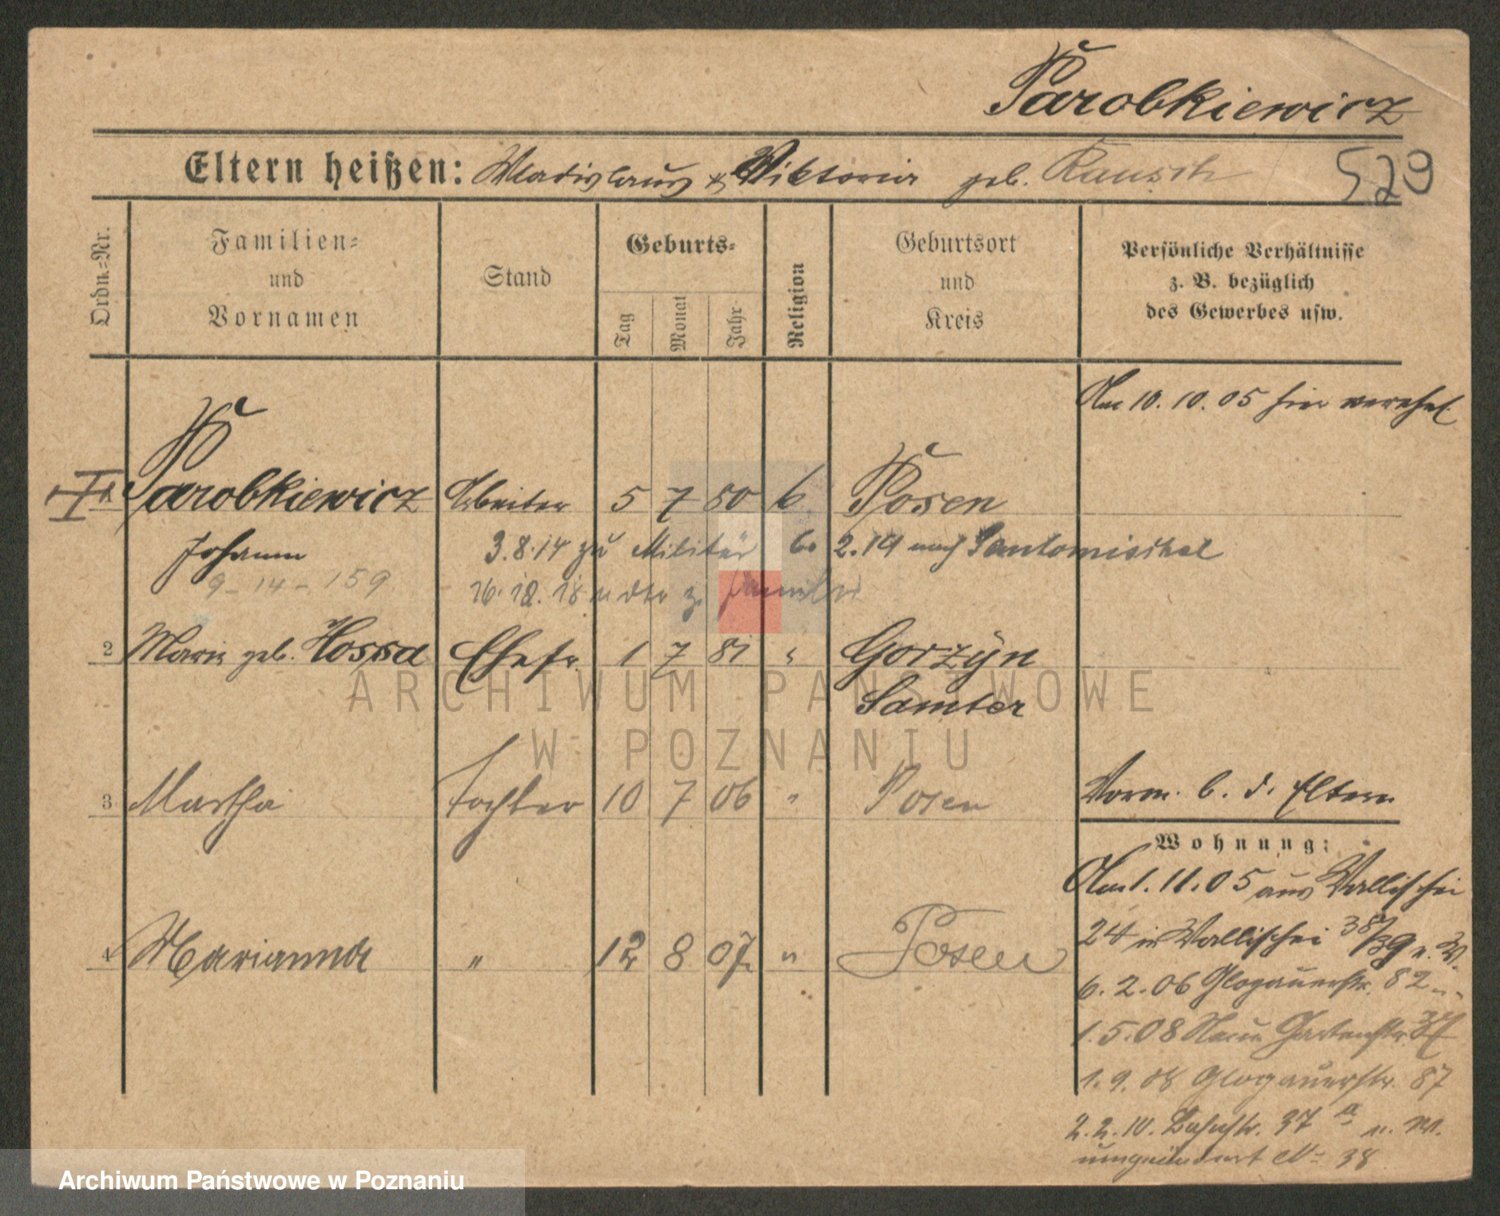 Parobkiewicz
Eltern heißen: Wladislaus & Viktoria geb. Rausch 529
Ordn.-Nr.
Familien-
und
Vornamen
Stand
Geburts-
Tag
Monat
Jahr
Religion
Geburtsort
und
Kreis
Persönliche Verhältnisse
z. B. bezüglich
des Gewerbes usw.
Am 10. 10. 05 hier verehel.
Parobkiewicz Arbeiter 5 7 80 k. Posen
Johann 3.8.14 zu Militär 6. 2. 19 nach Santomischel
9-14-159
16.12.18 z. Familie
2 Marie geb. Hossa Ehefr. 1 7 81 " Gorzyn
Samter
3 Martha Tochter 10 7 06 " Posen
Vorm. b. d. Eltern
Wohnung:
Am 1. 11. 05 aus Wallischei
24 in Wallischei 38/39 n. W.
4 Marianna " 12 8 07 " Posen
6. 2. 06 Glogauerstr. 82
1. 5. 08 Neue Gartenstr.
1. 9. 08 Glogauerstr. 87
2. 2. 10. Bahnstr. 37 a n. W.
umgeändert No 38
ARCHIWUM PAŃSTWOWE
W POZNANIU
Archiwum Państwowe w Poznaniu